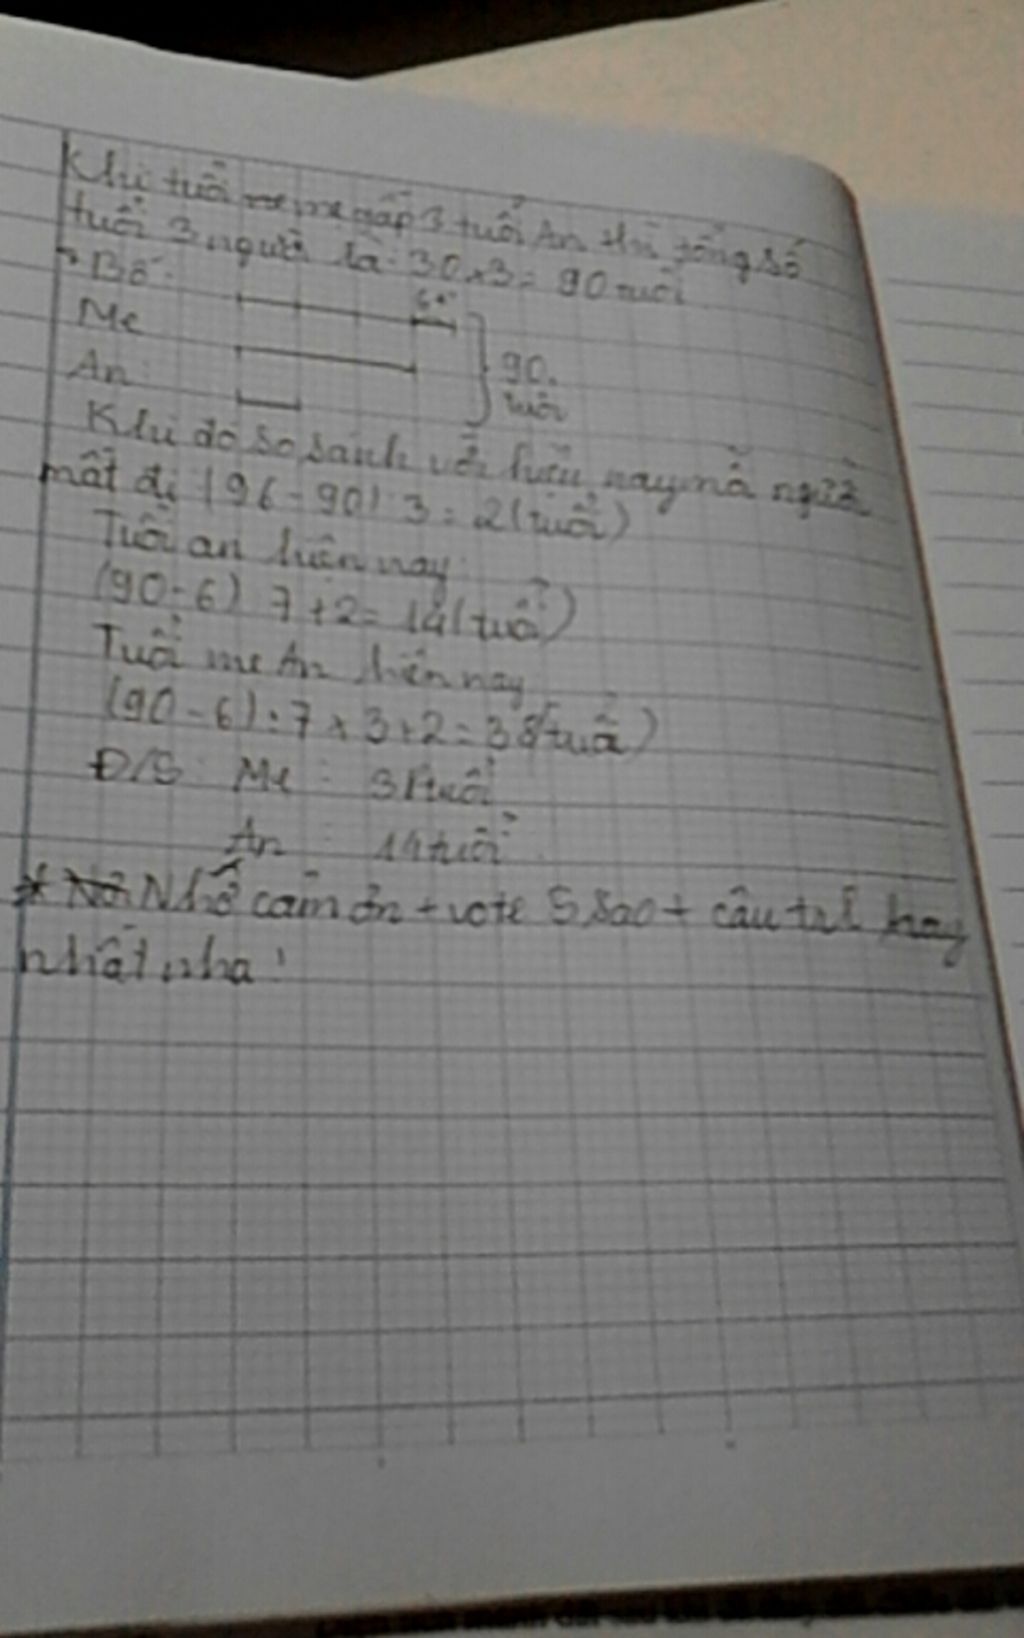 Khi tuổi mẹ gấp 3 tuổi An thì tổng số
tuổi 3 người là: 30 x 3 = 90 tuổi
Bố:
6t
Mẹ
90
tuổi
An:
Khi đó so sánh với hiện nay mỗi người
mất đi (96 - 90) : 3 = 2 (tuổi)
Tuổi an hiện nay:
(90 - 6) : 7 + 2 = 14 (tuổi)
Tuổi mẹ An hiện nay
(90 - 6) : 7 x 3 + 2 = 38 (tuổi)
Đ/S: Mẹ : tuổi
An : 14 tuổi
* Nhớ cảm ơn + vote 5 sao + câu trl hay
nhất nha!